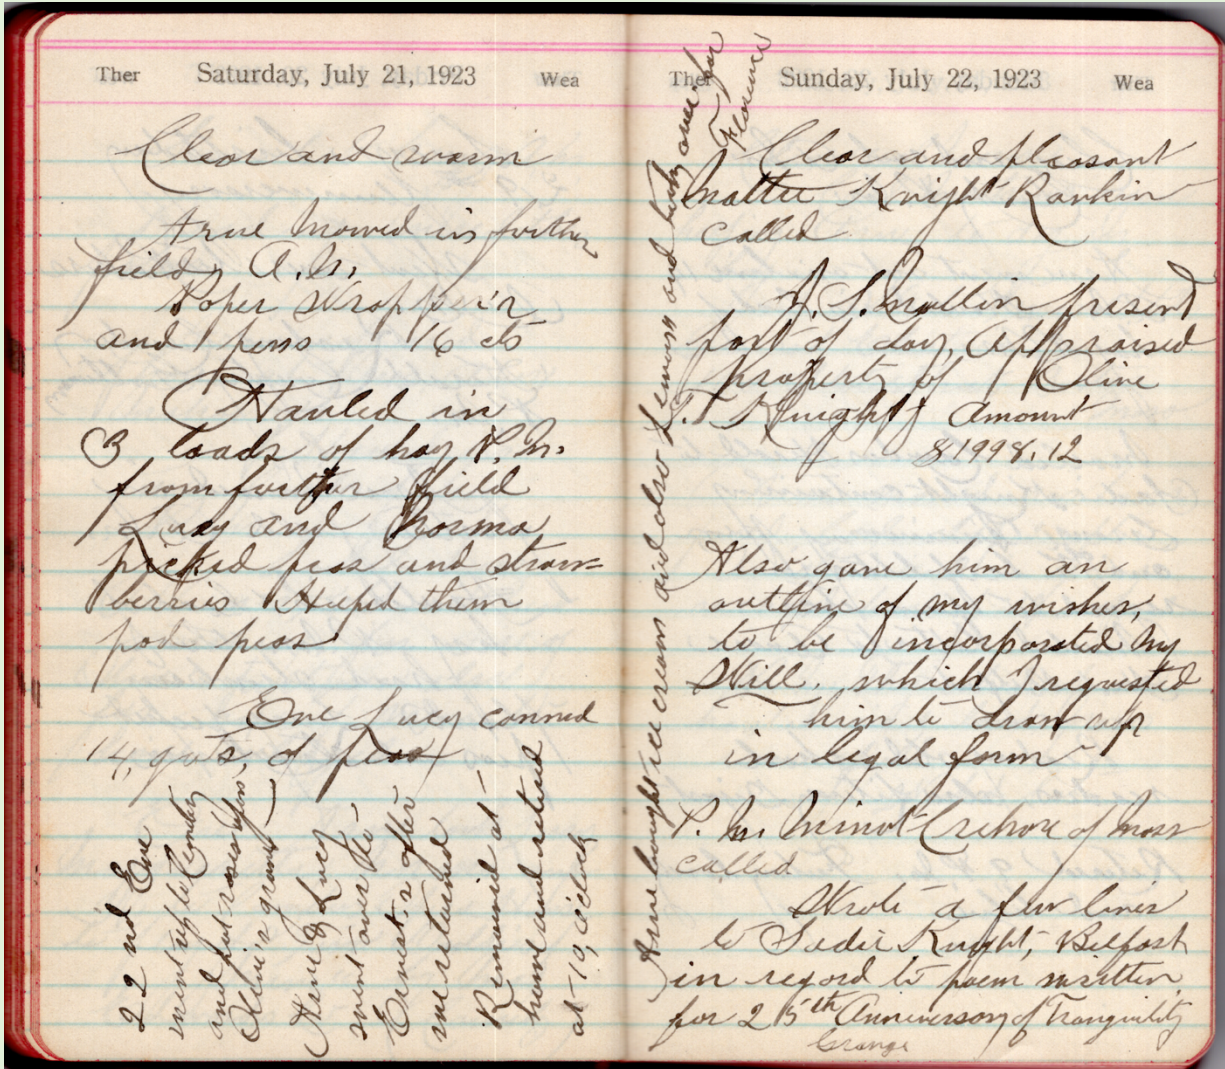 Ther Saturday, July 21, 1923 Wea
Clear and warm
Arne Mowed in further
field, A.M.
Paper Wrapper in
and pens 16 cts
Hauled in
3 loads of hay P.M.
from further field
Lucy and Norma
picked peas and straw=
berries Helped them
pod peas
Eve Lucy canned
14, qts, of peas
22nd Eve
went up to Cemetery
and put roses upon
Olive's grave
Arne & Lucy
went over to
Ernest,s after
we returned
Remained at
home and retired
at 10, o'clock
Ther Sunday, July 22, 1923 Wea
Clear and pleasant
Mattie Knight Rankin
called
J. S. Mullin present
part of day, Appraised
property of Olive
T. Knight, Amount
$1998.12
Also gave him an
outline of my wishes,
to be incorporated my
Will. which I requested
him to draw up
in legal form
P. M. Minot Crehore of Mass
called
Wrote a few lines
to Sadie Knight, Belfast
in regard to poem written
for 25th Anniversary of Tranquility
Grange
Arne bought ice cream and also Lemons and took over for
Florence